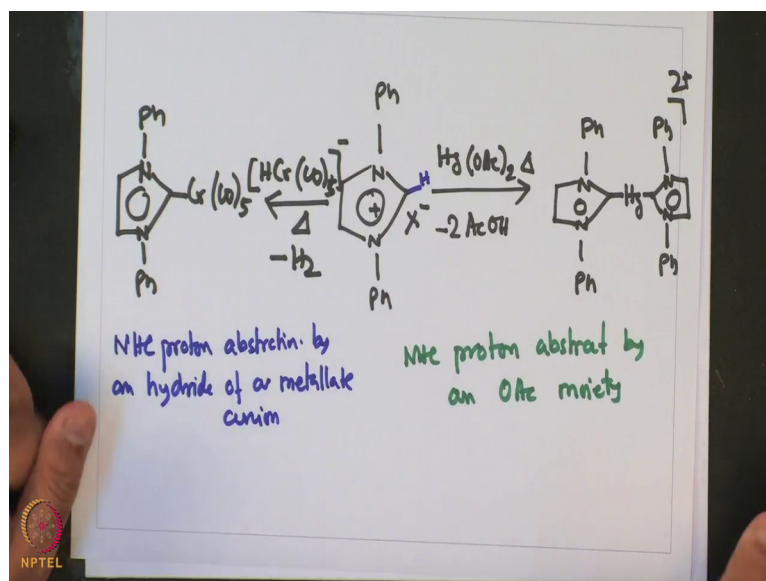 Ph
N
N
Ph
Cr(CO)5
[HCr(CO)5]-
Δ
-H2
Ph
N
+
N
Ph
H
X-
Hg(OAc)2 Δ
-2 AcOH
Ph
N
N
Ph
Hg
Ph
N
N
Ph
2+
NHC proton abstrction. by
an hydride of a metallate
anion
NHC proton abstrat by
an OAc moiety
NPTEL